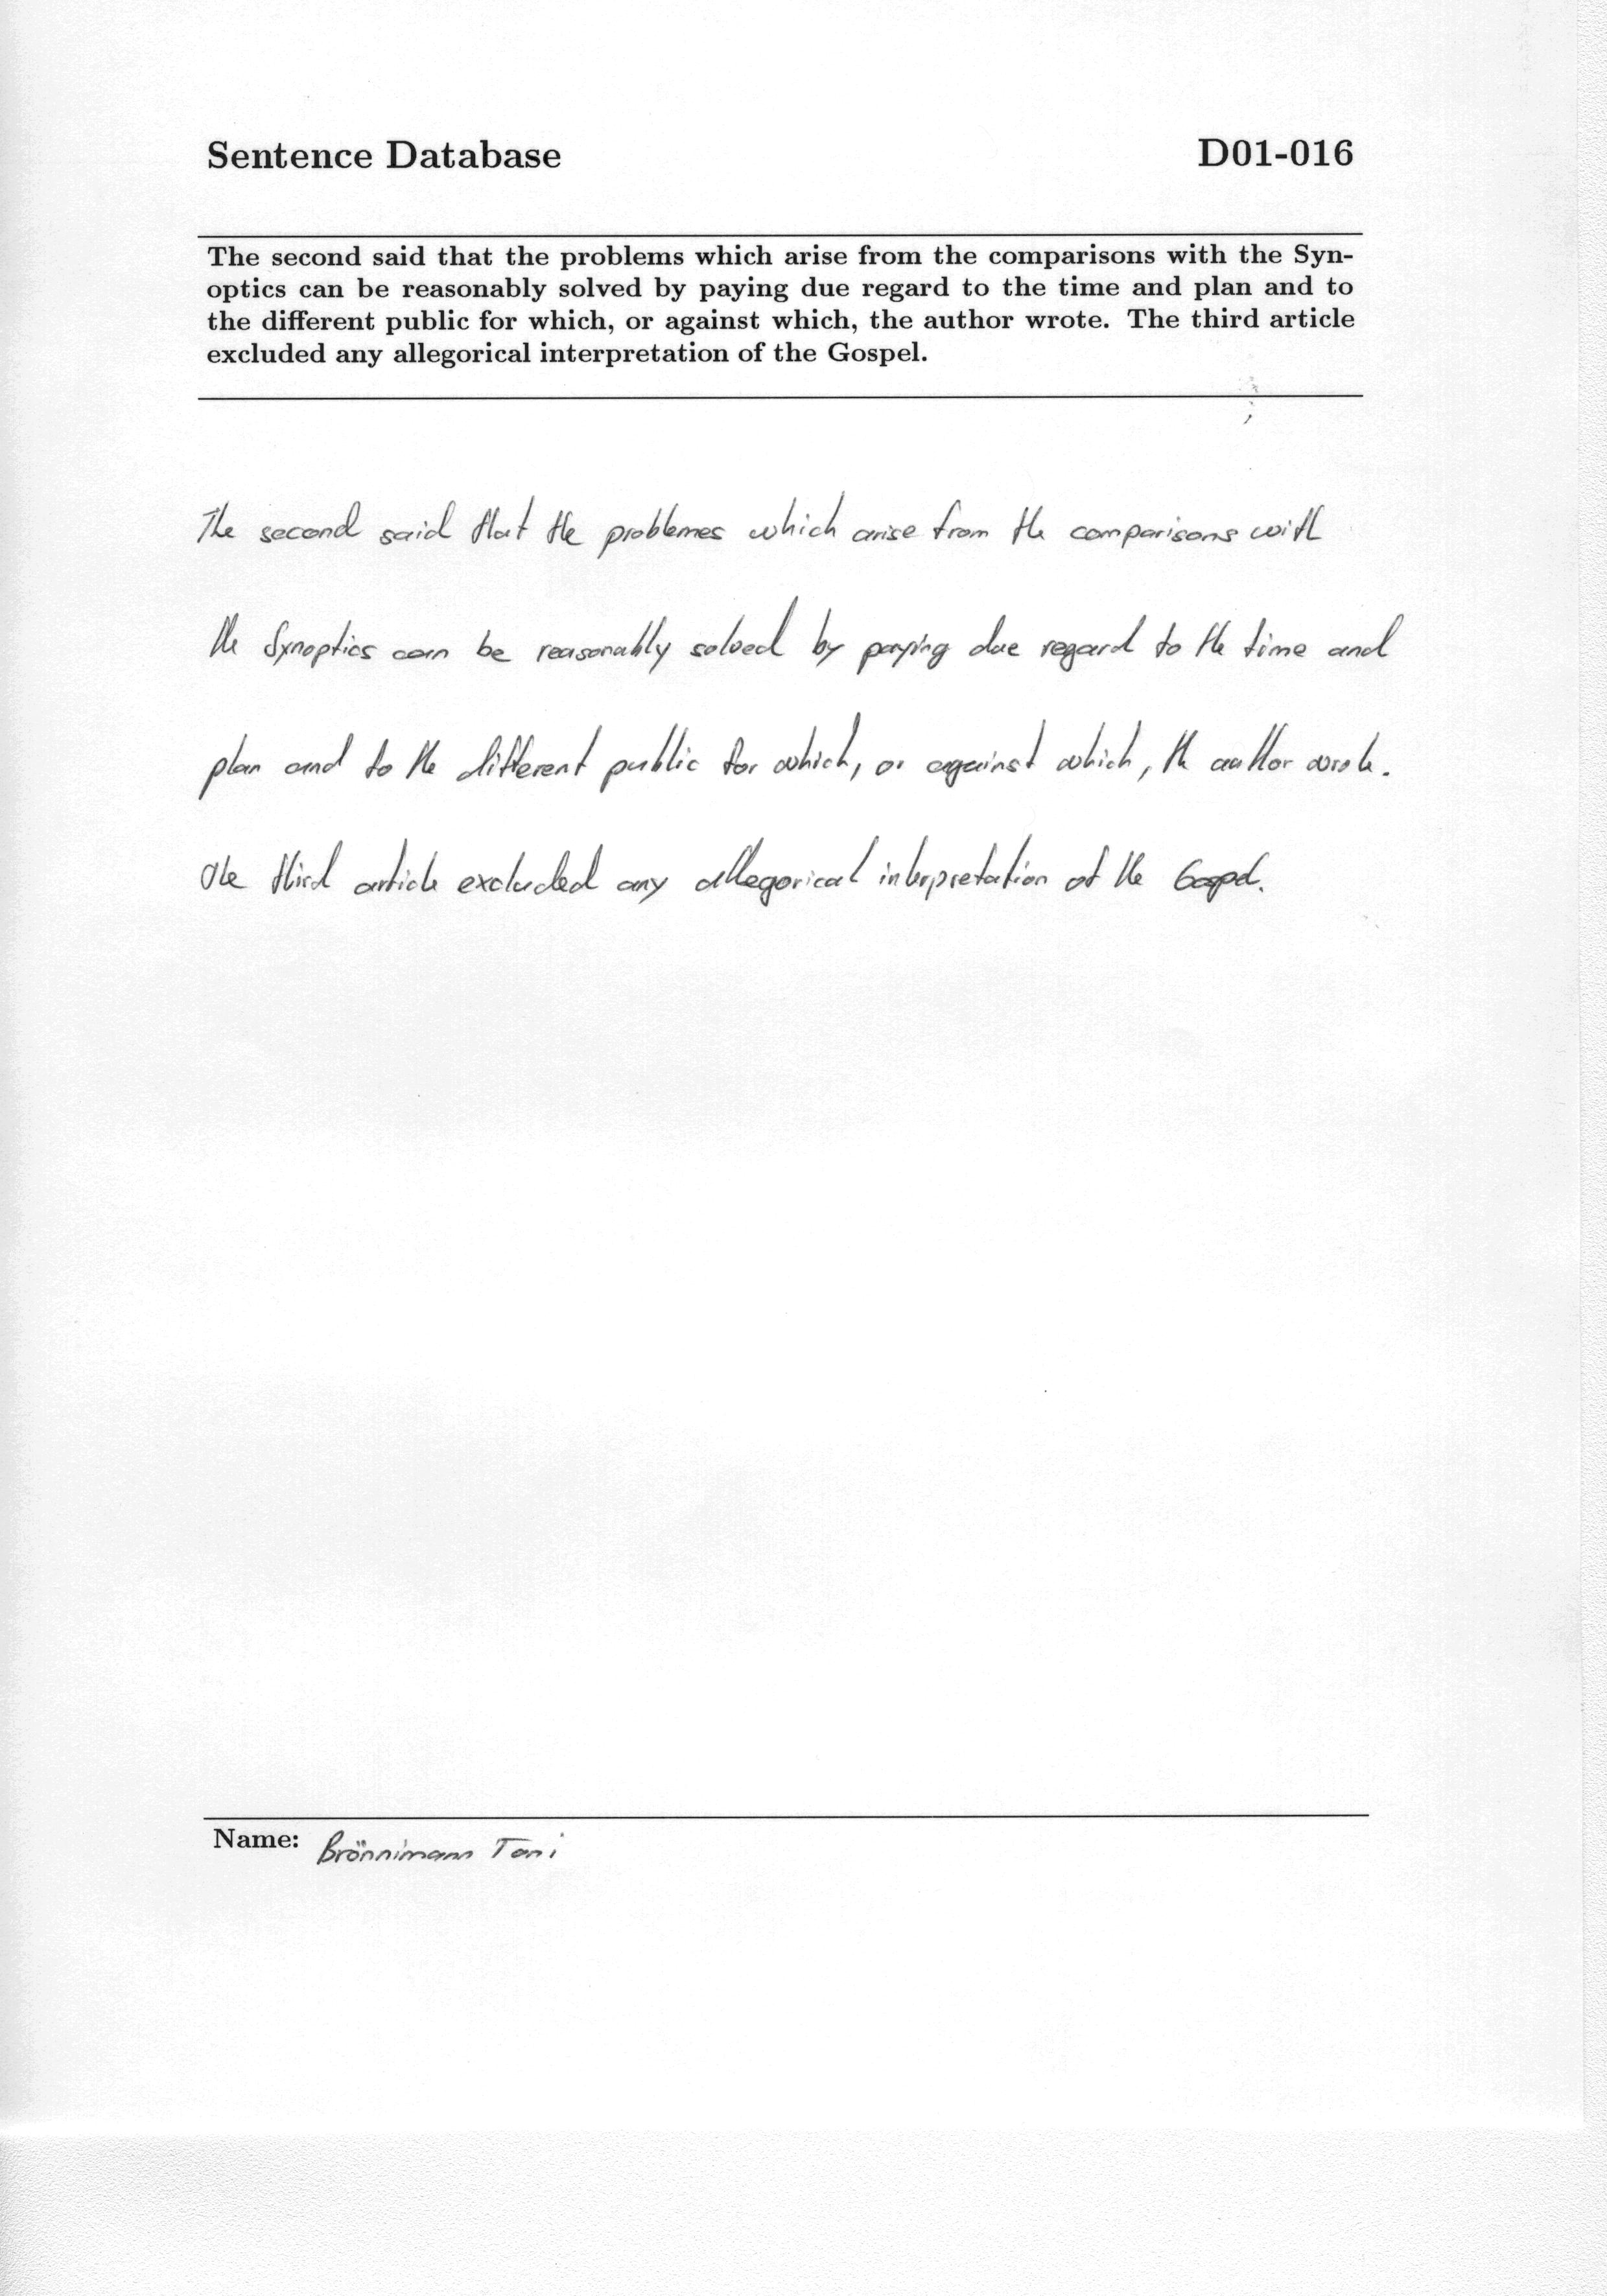 Sentence Database D01-016
The second said that the problems which arise from the comparisons with the Syn-
optics can be reasonably solved by paying due regard to the time and plan and to
the different public for which, or against which, the author wrote. The third article
excluded any allegorical interpretation of the Gospel.
The second said that the problemes which arise from the comparisons with
the Synoptics can be reasonably solved by paying due regard to the time and
plan and to the different public for which, or against which, the author wrote.
The third article excluded any allegorical interpretation of the Gospel.
Name: Brönnimann Toni